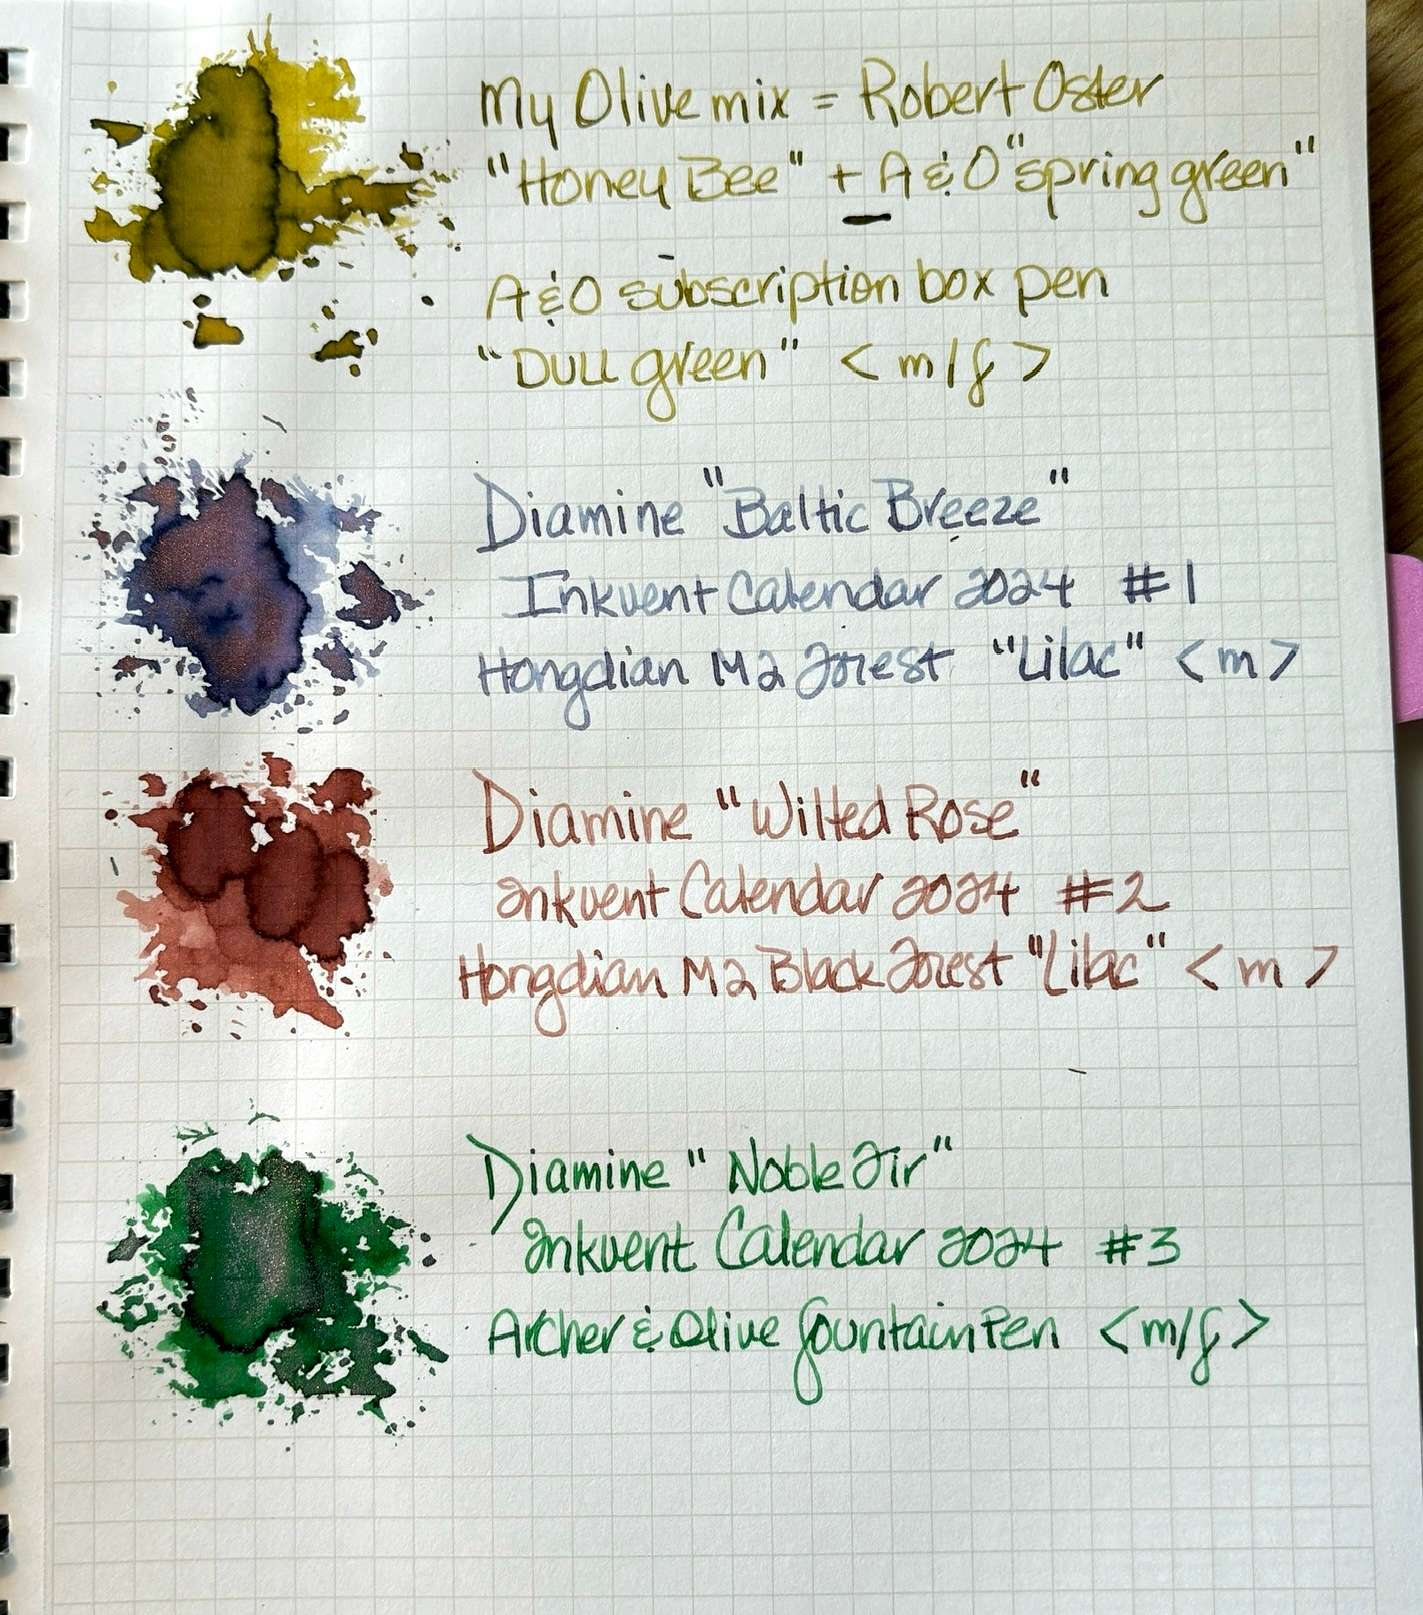 My Olive mix = Robert Oster
"Honey Bee" + A & O "spring green"
A & O subscription box pen
"DULL green" < m/f >
Diamine "Baltic Breeze"
Inkvent Calendar 2024 #1
Hongdian M2 Forest "Lilac" < m >
Diamine "Wilted Rose"
Inkvent Calendar 2024 #2
Hongdian M2 Black Forest "Lilac" < m >
Diamine "Noble Fir"
Inkvent Calendar 2024 #3
Archer & Olive fountain Pen < m/f >